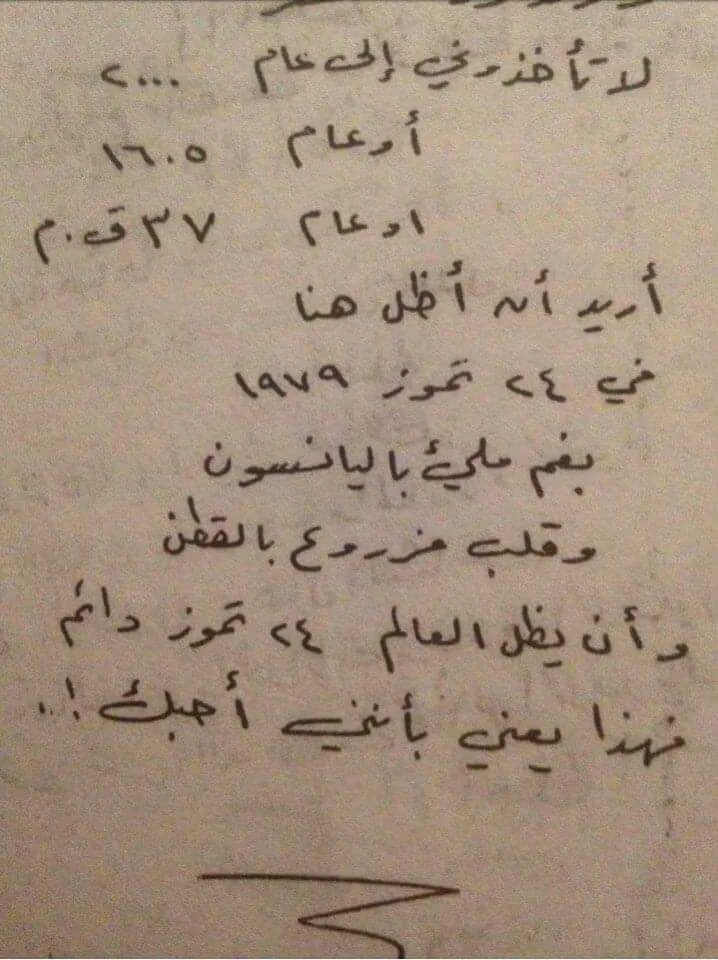 لا تأخذوني إلى عام ٢٠٠٠
أو عام ١٦٠٥
او عام ٣٧ ق.م
أريد أن أظل هنا
في ٢٤ تموز ١٩٧٩
بفم مليئ باليانسون
وقلب مزروع بالقطن
وأن يظل العالم ٢٤ تموز دائم
فهذا يعني بأنني أحبك !..